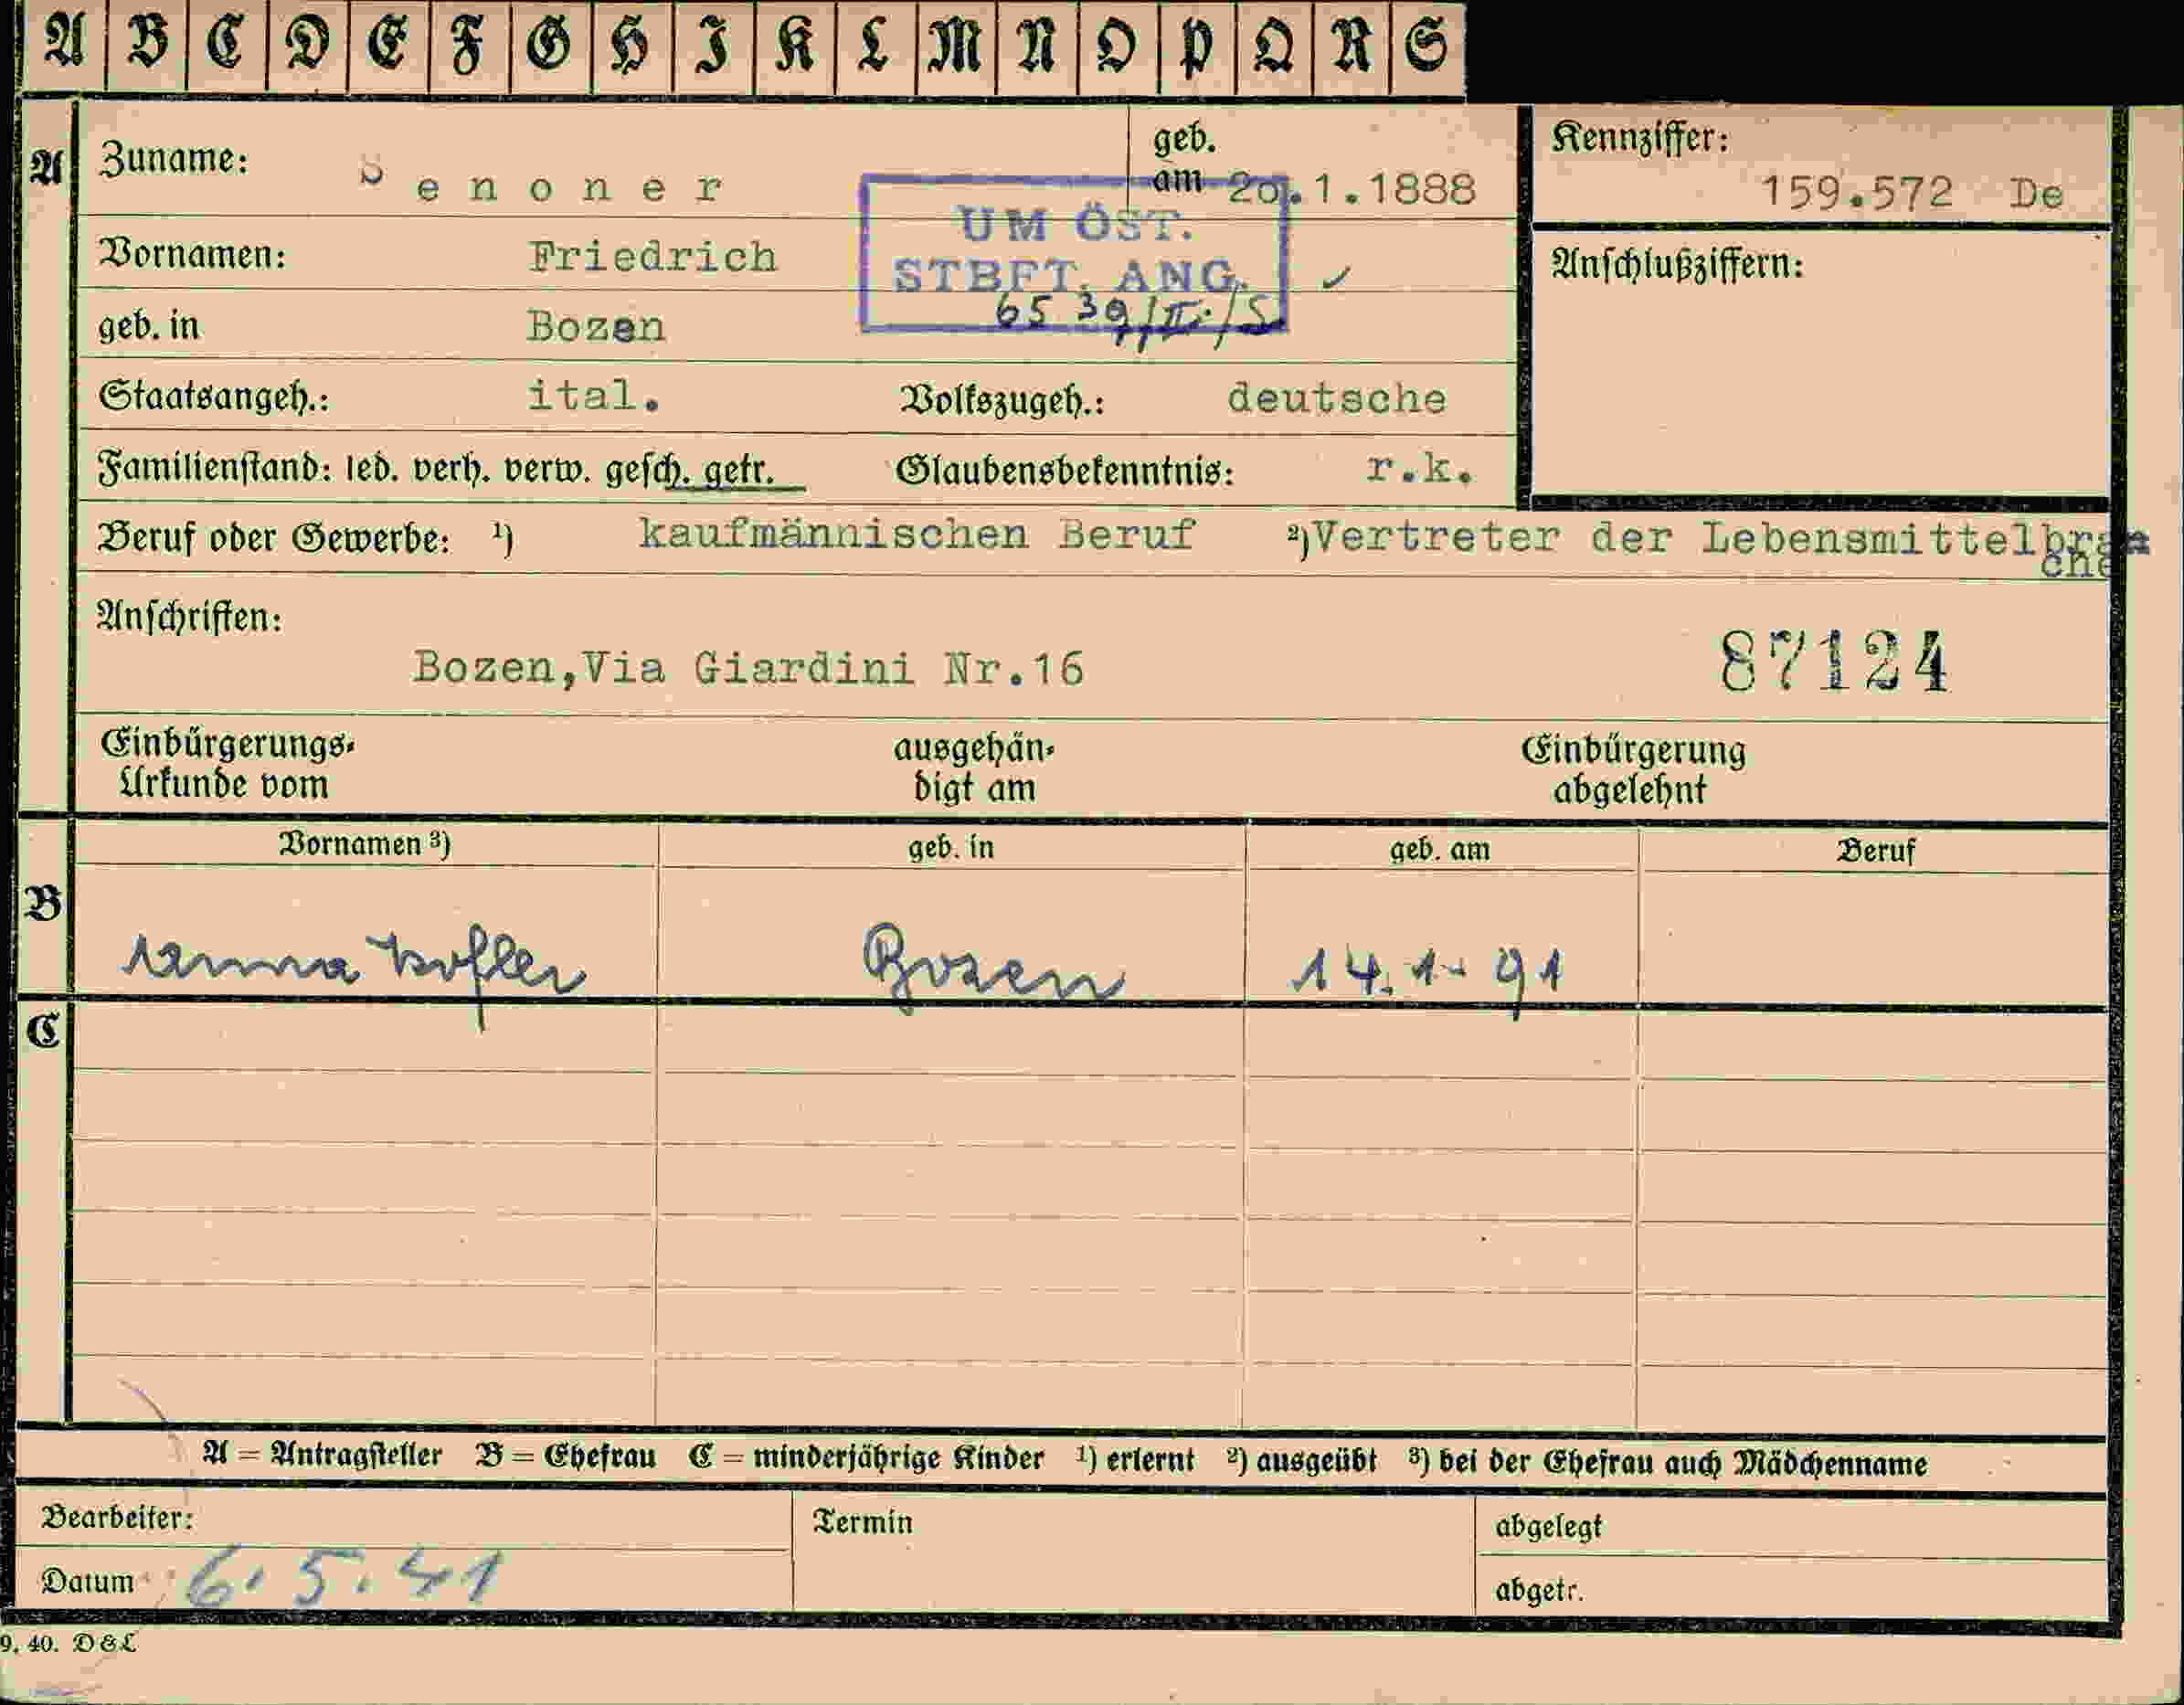 A B C D E F G H I K L M N O P Q R S
A Zuname: Senoner geb. am 20.1.1888 Kennziffer: 159.572 De
UM ÖST.
STBFT. ANG.
65 39/II./S
Vornamen: Friedrich Anschlußziffern:
geb. in Bozen
Staatsangeh.: ital. Volkszugeh.: deutsche
Familienstand: led. verh. verw. gesch. getr. Glaubensbekenntnis: r.k.
Beruf oder Gewerbe: ¹) kaufmännischen Beruf ²) Vertreter der Lebensmittelbran
che
Anschriften:
Bozen, Via Giardini Nr.16 87124
Einbürgerungs- ausgehän- Einbürgerung
Urkunde vom digt am abgelehnt
Vornamen ³) geb. in geb. am Beruf
B
Anna Kofler Bozen 14.1.91
C
A = Antragsteller B = Ehefrau C = minderjährige Kinder ¹) erlernt ²) ausgeübt ³) bei der Ehefrau auch Mädchenname
Bearbeiter: Termin abgelegt
Datum 6.5.41 abgetr.
9. 40. D&L